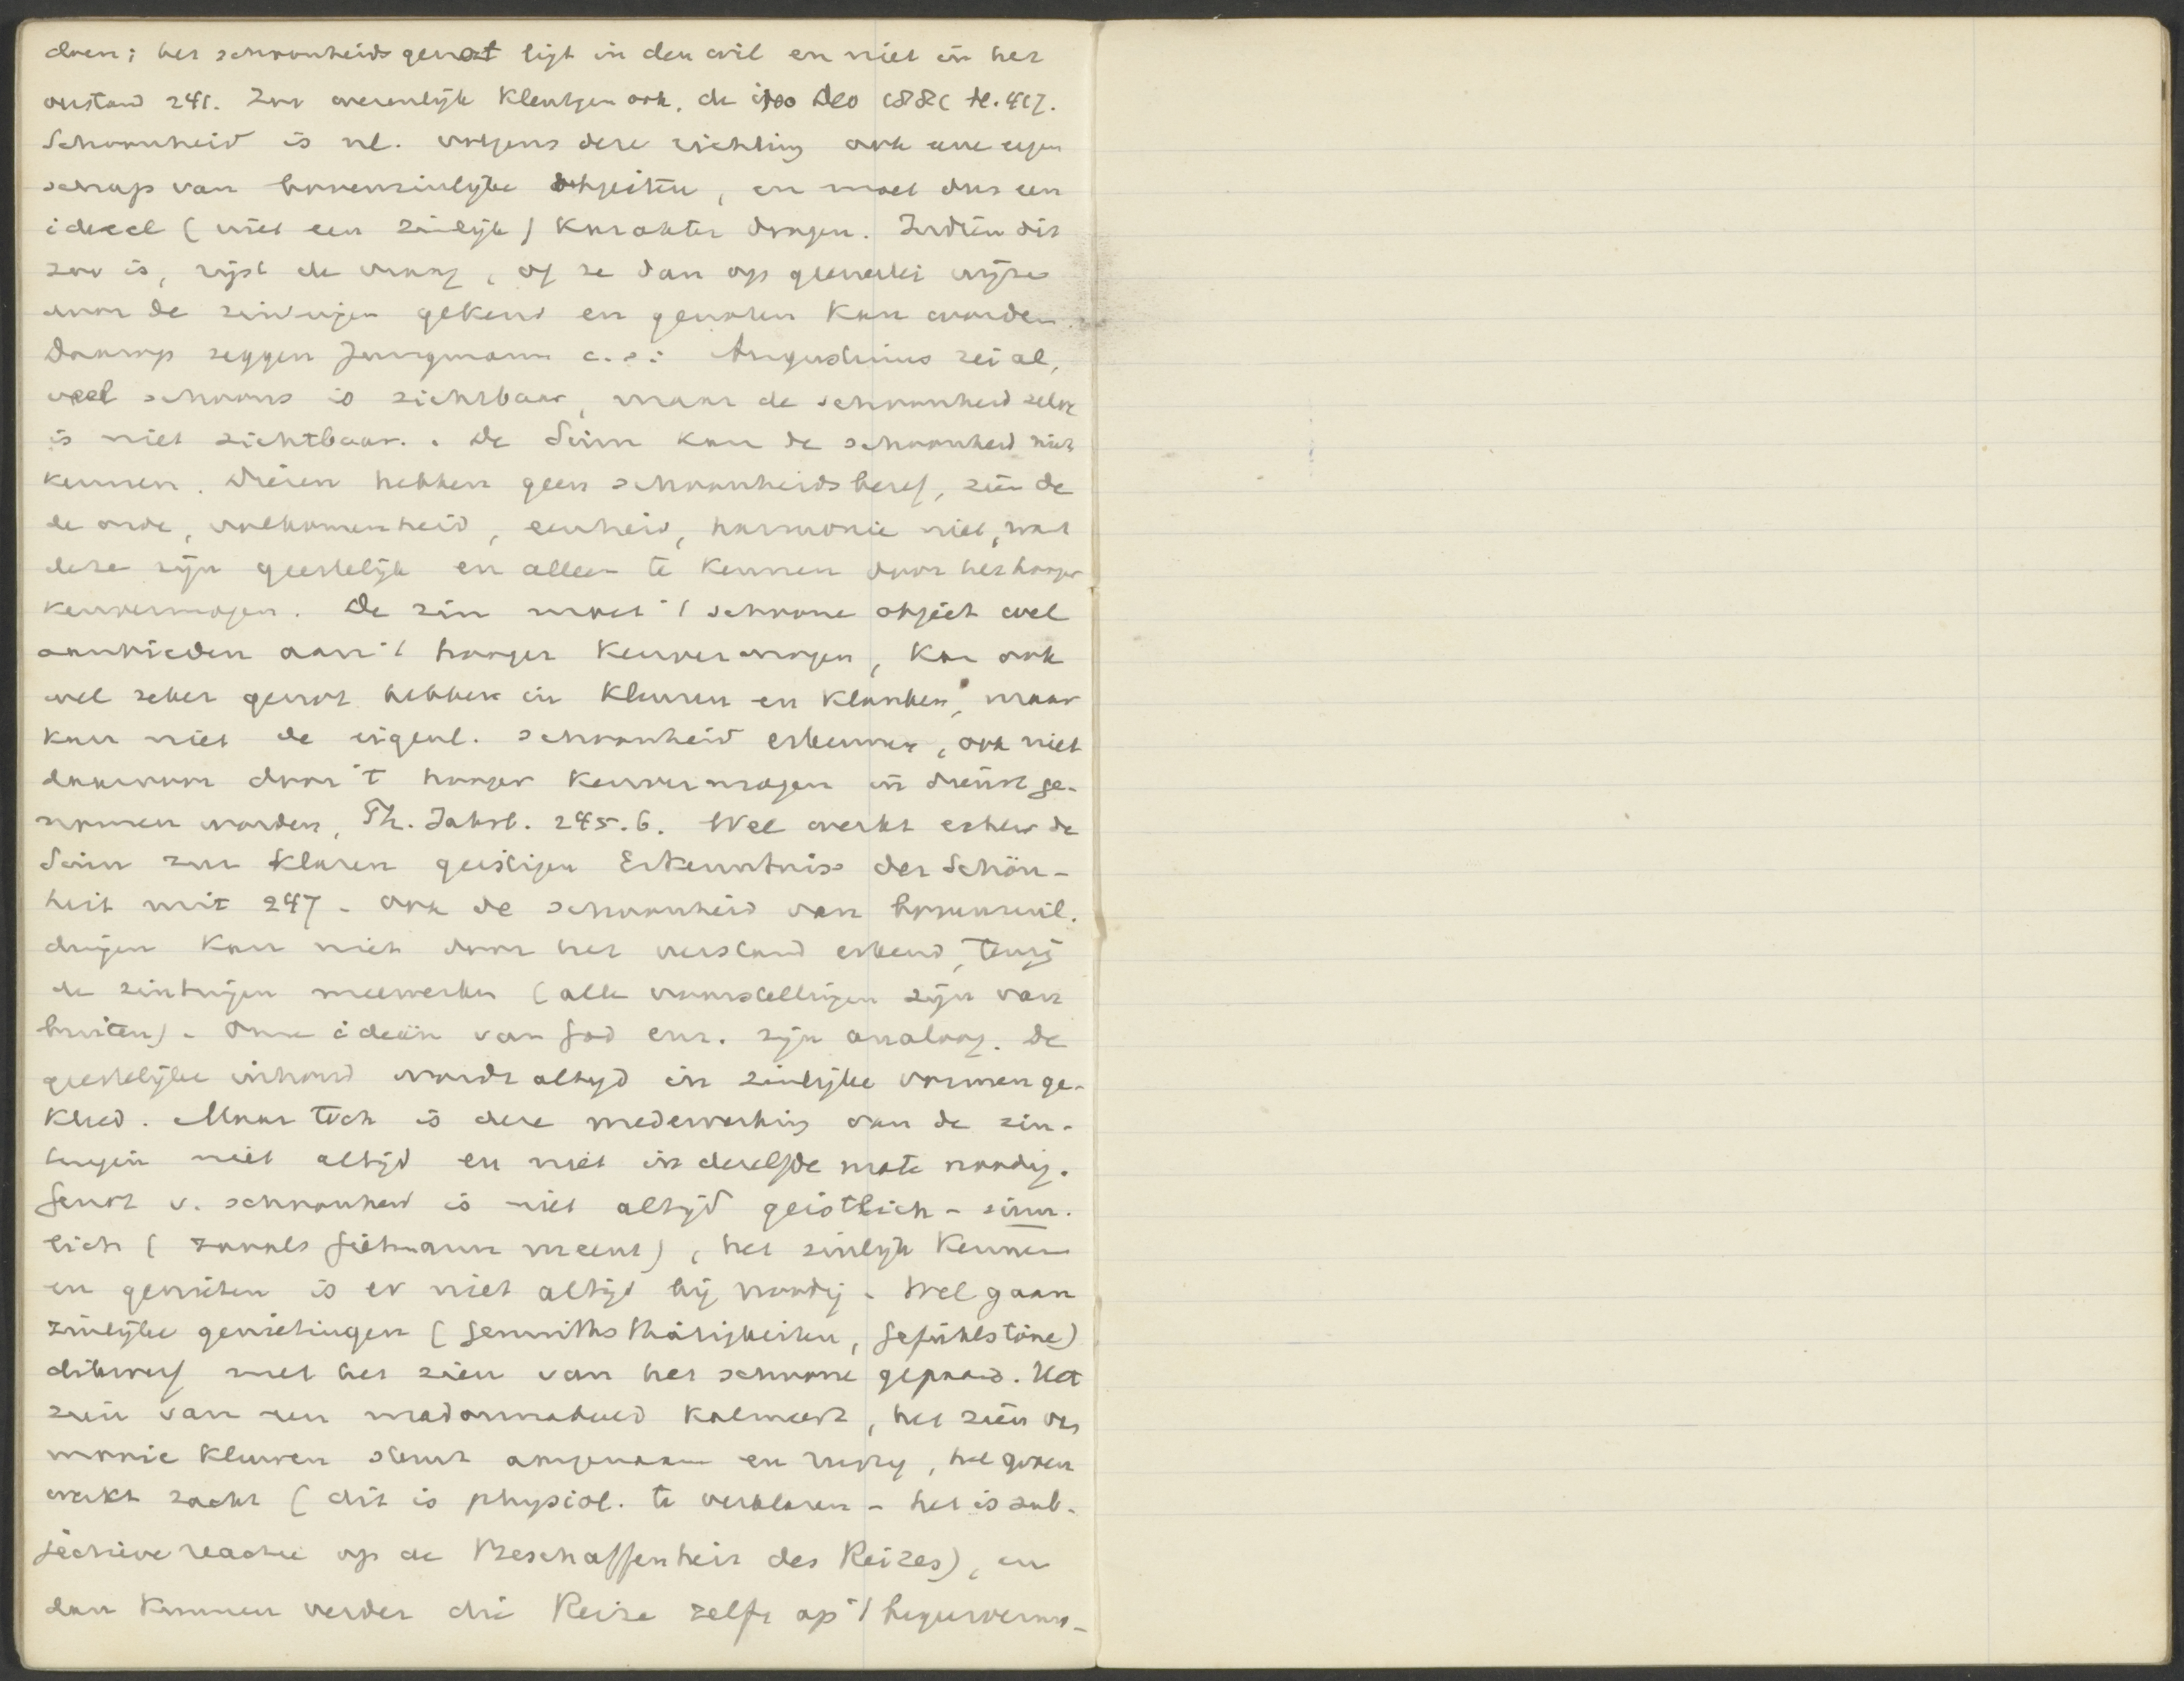 doen; het schoonheidsgenot ligt in den wil en niet in het
verstand 241. Zoo overenlijk Kleutgen ook, de ipso Deo 1881 bl. 417.
Schoonheid is nl. volgens deze richting ook eene eigen
schap van bovenzinlijke objecten, en moet dus een
ideeel (niet een zinlijk) karakter dragen. Indien dit
zoo is, rijst de vraag, of ze dan op generlei wijze
door de zintuigen gekend en genoten kan worden.
Daarop zeggen Jungmann c.s.: Augustinus zei al,
veel schoons is zichtbaar, maar de schoonheid zelve
is niet zichtbaar. De Sinn kan de schoonheid niet
kennen. Dieren hebben geen schoonheidsbesef, zien de
de orde, volkomenheid, eenheid, harmonie niet, want
deze zijn geestelijk en alleen te kennen door het hooger
kenvermogen. De zin moet 't schoone object wel
aanbieden aan 't hooger kenvermogen, kan ook
wel zeker genot hebben in kleuren en klanken, maar
kan niet de eigenl. schoonheid erkennen, ook niet
daarvoor door 't hooger kenvermogen in dienst ge-
nomen worden, Th. Jahrb. 245.6. Wel werkt echter de
Sinn zur klaren geistigen Erkenntniss der Schön-
heit mit 247 - ook de schoonheid van bovenzinl.
dingen kan niet door het verstand erkend, tenzij
de zintuigen meewerken (alle voorstellingen zijn van
buiten). Onze ideeën van God enz. zijn analoog. De
geestelijke inhoud wordt altijd in zinlijke vormen ge-
kleed. Maar toch is deze medewerking van de zin-
tuigen niet altijd en niet in dezelfde mate noodig.
Genot v. schoonheid is niet altijd geistlich - sinn-
lich (zooals Gietmann meent), het zinlijk kennen
en genieten is er niet altijd bij noodig - Wel gaan
zinlijke genietingen (Gemüths thätigkeiten, Gefühlstöne)
dikwerf met het zien van het schoone gepaard. Het
zien van een madonnabeeld kalmeert, het zien van
mooie kleuren stemt aangenaam en rustig, het groen
werkt zacht (dit is physiol. te verklaren - het is sub-
jectieve reactie op de Beschaffenheit des Reizes), en
dan kunnen verder die Reize zelfs op 't begeervermo-